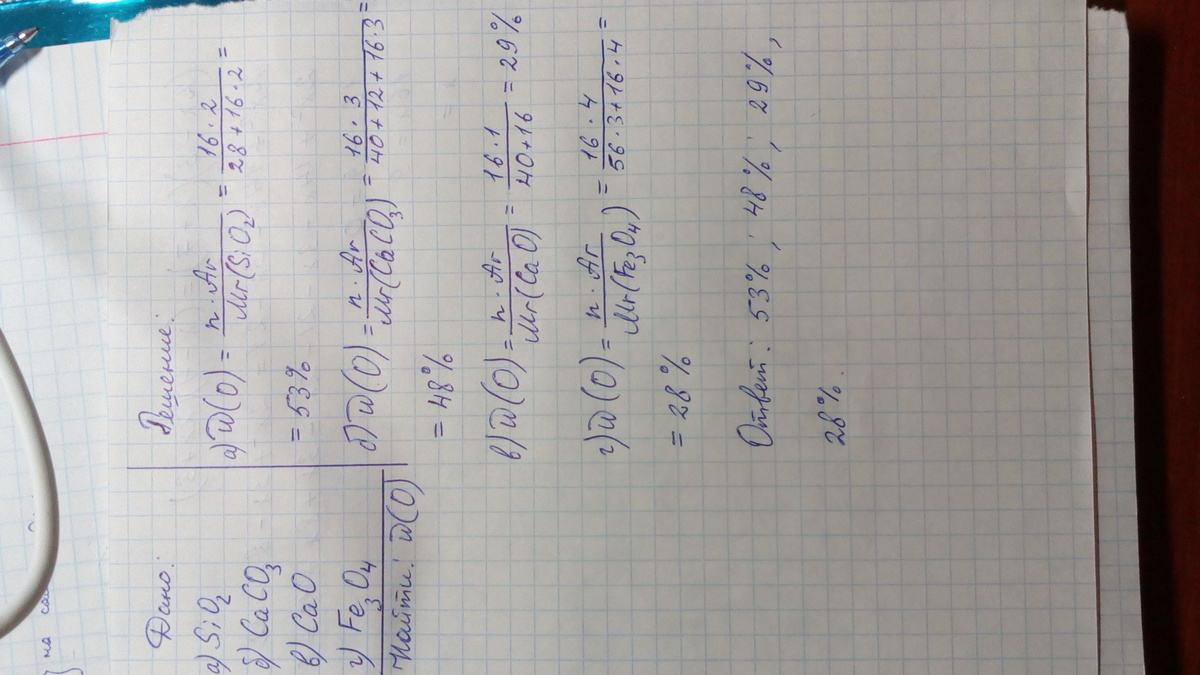 Дано:
а) SiO₂
б) CaCO₃
в) CaO
г) Fe₃O₄
Найти: w(O)
Решение:
а) w(O) = n · Ar / Mr(SiO₂) = 16 · 2 / 28 + 16 · 2 =
= 53%
б) w(O) = n · Ar / Mr(CaCO₃) = 16 · 3 / 40 + 12 + 16 · 3 =
= 48%
в) w(O) = n · Ar / Mr(CaO) = 16 · 1 / 40 + 16 = 29%
г) w(O) = n · Ar / Mr(Fe₃O₄) = 16 · 4 / 56 · 3 + 16 · 4 =
= 28%
Ответ: 53% ; 48% ; 29% ;
28%.
на